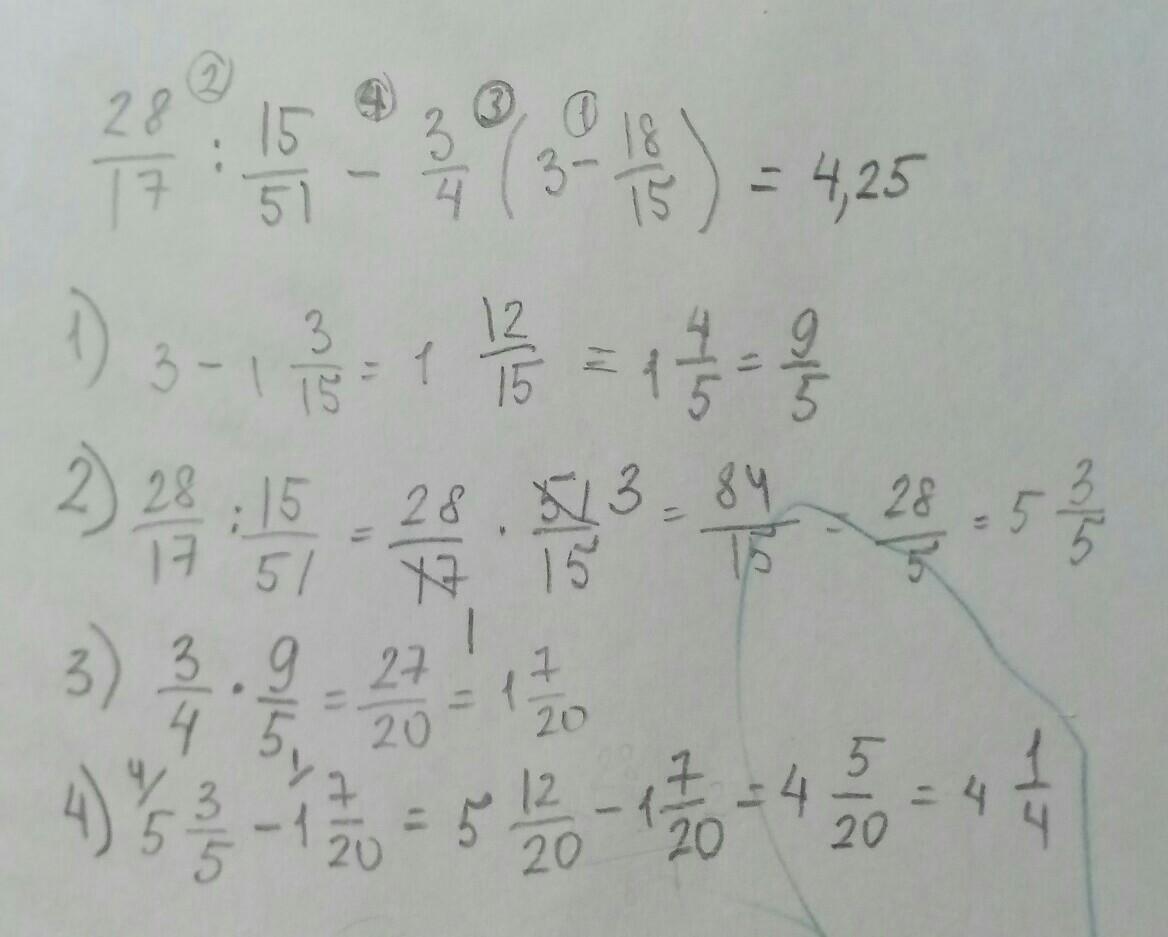 28/17 ② : 15/51 ④ - 3/4 ③ (3 ① - 18/15) = 4,25
1) 3 - 1 3/15 = 1 12/15 = 1 4/5 = 9/5
2) 28/17 : 15/51 = 28/17 1 · 51 3/15 = 84/15 = 28/5 = 5 3/5
3) 3/4 · 9/5 = 27/20 = 1 7/20
4) 4/ 5 3/5 - 1/ 1 7/20 = 5 12/20 - 1 7/20 = 4 5/20 = 4 1/4